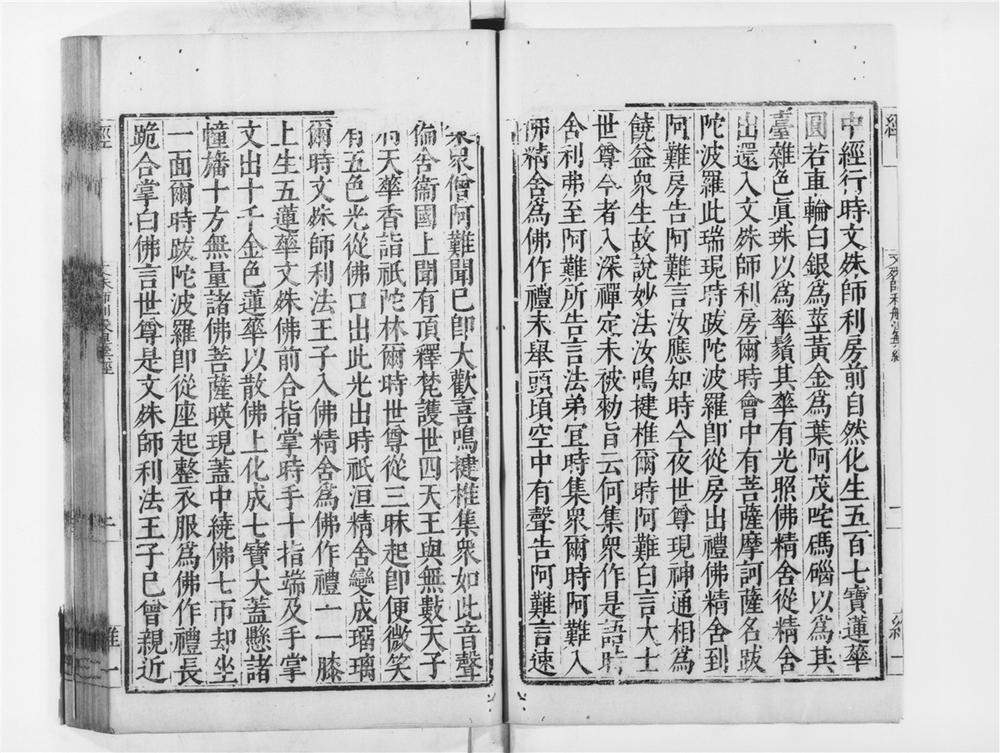 中經行時文殊師利房前自然化生五百七寶蓮華
圓若車輪白銀爲莖黃金爲葉阿茂咤碼碯以爲其
臺雜色眞珠以爲華鬚其華有光照佛精舍從精舍
出還入文殊師利房爾時會中有菩薩摩訶薩名跋
陀波羅此瑞現時跋陀波羅卽從房出禮佛精舍到
阿難房告阿難言汝應知時今夜世尊現神通相爲
饒益衆生故說妙法汝鳴揵椎爾時阿難白言大士
世尊今者入深禪定未被勑旨云何集衆作是語時
舍利弗至阿難所告言法弟宜時集衆爾時阿難入
佛精舍爲佛作禮未舉頭頃空中有聲告阿難言速
集衆僧阿難聞已卽大歡喜鳴揵椎集衆如此音聲
徧舍衞國上聞有頂釋梵護世四天王與無數天子
將天華香詣祇陀林爾時世尊從三昧起卽便微笑
有五色光從佛口出此光出時祇洹精舍變成瑠璃
爾時文殊師利法王子入佛精舍爲佛作禮一一膝
上生五蓮華文殊佛前合指掌時手十指端及手掌
文出十千金色蓮華以散佛上化成七寶大蓋懸諸
幢旛十方無量諸佛菩薩暎現蓋中繞佛七帀却坐
一面爾時跋陀波羅卽從座起整衣服爲佛作禮長
跪合掌白佛言世尊是文殊師利法王子已曾親近